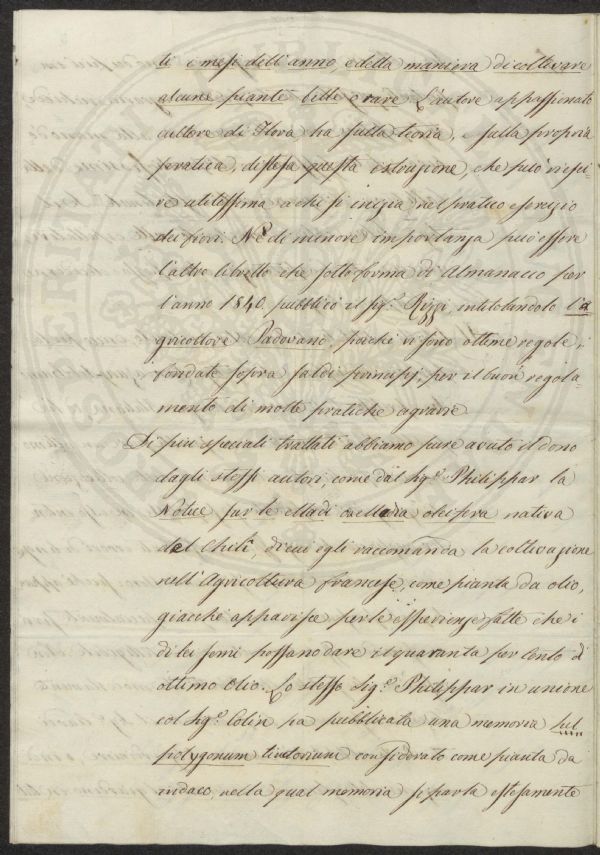 ti i mesi dell'anno, e della maniera di coltivare
alcune piante belle e rare. L'autore appassionato
cultore di Flora ha sulla teoria, e sulla propria
pratica, distesa questa istruzione, che può riesci-
re utilissima a chi si inizia nel pratico esercizio
dei fiori. Nè di minore importanza può essere
l'altro libretto che sotto forma di Almanacco per
l'anno 1840. pubblicò il sigr. Rizzi, intitolandolo l'a
gricoltore Padovano, poichè vi sono ottime regole,
fondate sopra saldi principj, per il buon regola-
mento di molte pratiche agrarie.
Di più speciali trattati abbiamo pure avuto il dono
dagli stessi autori, come dal Sigr. Philippar la
Notice sur le Madi oleifera nativa
del Chilì, di cui egli raccomanda la coltivazione
nell'Agricoltura francese, come pianta da olio,
giacchè apparisce per le esperienze fatte che i
di lei semi possano dare il quaranta per cento d'
ottimo olio. Lo stesso Sigr. Philippar in unione
col Sigr. Colin ha pubblicata una memoria sul
polygonum tinctorium considerato come pianta da
indaco, nella qual memoria si parla estesamente